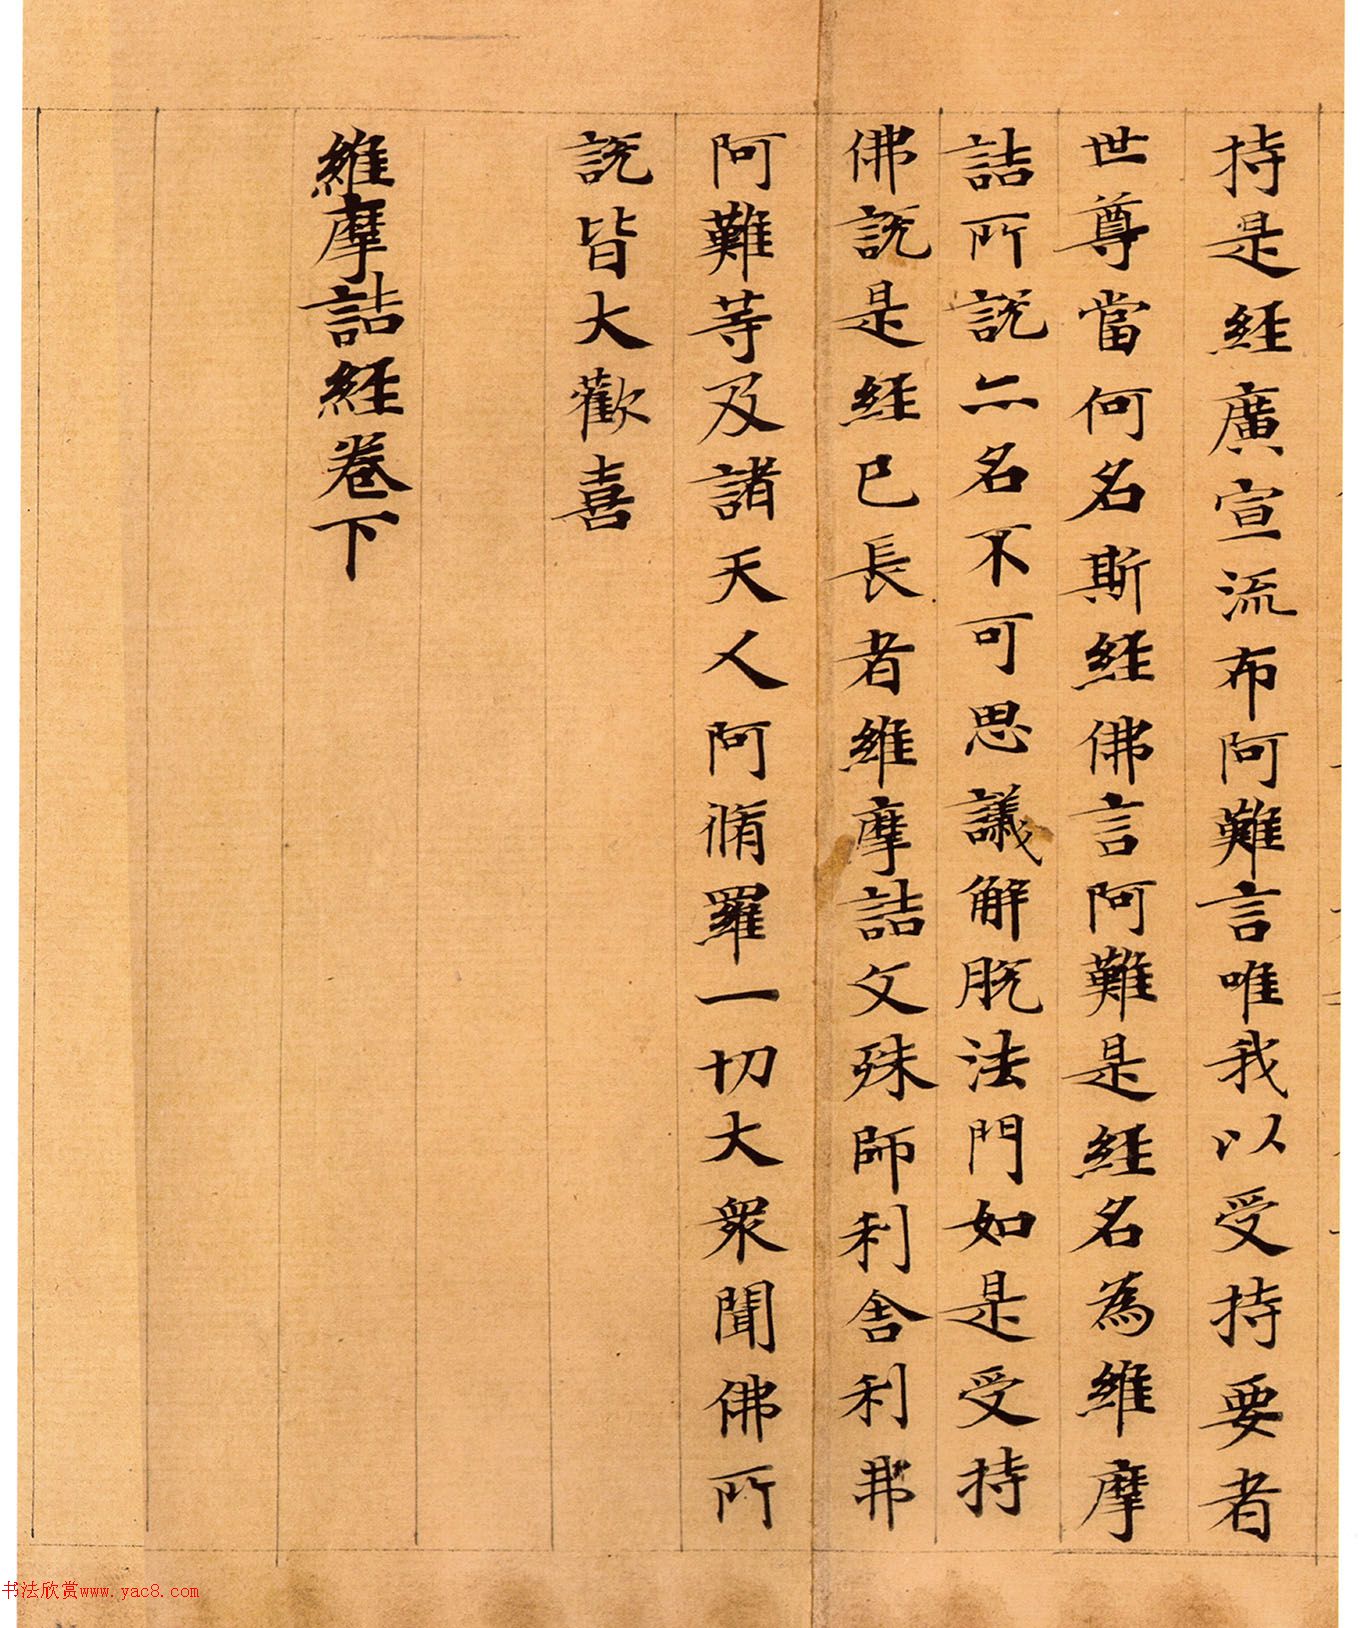 持是經廣宣流布阿難言唯我以受持要者
世尊當何名斯經佛言阿難是經名為維摩
詰所說亦名不可思議解脫法門如是受持
佛說是經已長者維摩詰文殊師利舍利弗
阿難等及諸天人阿脩羅一切大眾聞佛所
說皆大歡喜
維摩詰經卷下
书法欣赏www.yac8.com